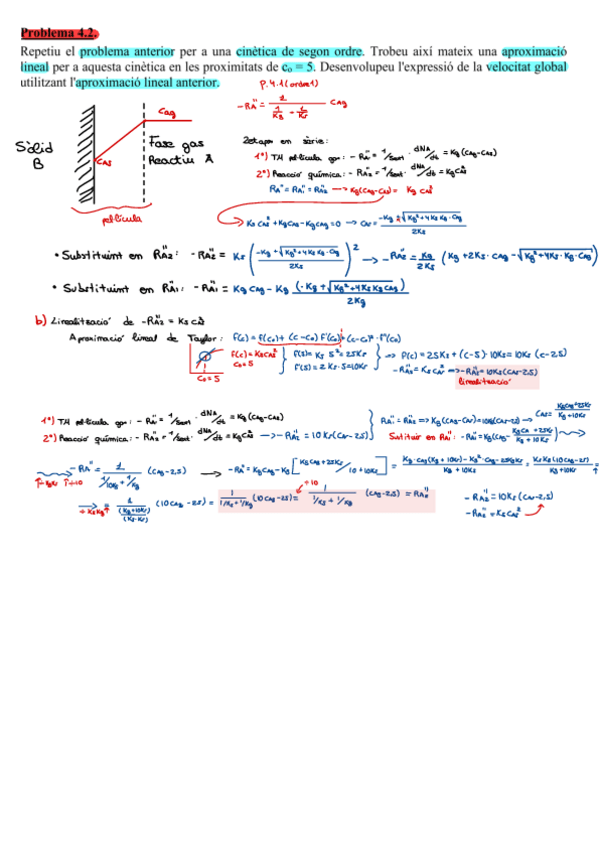 Problema 4.2.
Repetiu el problema anterior per a una cinètica de segon ordre. Trobeu així mateix una aproximació
lineal per a aquesta cinètica en les proximitats de c₀ = 5. Desenvolupeu l'expressió de la velocitat global
utilitzant l'aproximació lineal anterior.
P.4.1 (ordre 1)
-RA'' = 1 / (1/Kg + 1/Ks) CAg
Sòlid
B
CAg
CAs
Fase gas
Reactiu A
pel·lícula
2 etapes en sèrie:
1ª) TM pel·lícula gas: -RA1'' = 1/Sext · dNA/dt = Kg(CAg-CAs)
2ª) Reacció química: -RA2'' = 1/Sext · dNA/dt = KsCAs²
RA'' = RA1'' = RA2'' → Kg(CAg-CAs) = Ks CAs²
Ks CAs² + KgCAs - KgCAg = 0 → CAs = (-Kg ± √(Kg² + 4Ks Kg CAg)) / 2Ks
• Substituint en RA2'': -RA2'' = Ks ((-Kg + √(Kg² + 4Ks Kg CAg)) / 2Ks)² → -RA2'' = Kg/2Ks (Kg + 2Ks · CAg - √(Kg² + 4Ks · Kg · CAg))
• Substituint en RA1'': -RA1'' = Kg CAg - Kg (-Kg + √(Kg² + 4Ks Kg CAg)) / 2Kg
b) Linealització de -RA2'' = Ks CAs²
Aproximació lineal de Taylor: f(c) = f(c₀) + (c-c₀) f'(c₀) + (c-c₀)² · f''(c₀)
f(c) = KsCAs²
c₀ = 5
f(5) = Ks 5² = 25Ks
f'(5) = 2 Ks · 5 = 10Ks
⇒ f(c) = 25Ks + (c-5) · 10Ks = 10Ks (c-2.5)
-RA2'' = Ks CAs² → -RA2'' = 10Ks(CAs-2.5)
linealització
C₀ = 5
1ª) TM pel·lícula gas: -RA1'' = 1/Sext · dNA/dt = Kg(CAg-CAs)
2ª) Reacció química: -RA2'' = 1/Sext · dNA/dt = KsCAs² → -RA2'' = 10Ks(CAs-2.5)
RA1'' = RA2'' ⇒ Kg(CAg-CAs) = 10Ks(CAs-2.5) → CAs = (KgCAg + 25Ks) / (Kg + 10Ks)
Sustituir en RA1'': -RA1'' = Kg(CAg - (KgCAg + 25Ks) / (Kg + 10Ks))
-RA'' = 1 / (1/10Ks + 1/Kg) (CAg-2.5) → -RA'' = KgCAg - Kg [(KgCAg + 25Ks) / (Kg + 10Ks)] = (Kg · CAg(Kg + 10Ks) - Kg² · CAg - 25KgKs) / (Kg + 10Ks) = KgKs(10CAg-25) / (Kg + 10Ks)
÷KsKg → = 1 / ((Kg + 10Ks) / (Ks · Kg)) (10CAg - 25) = 1 / (1/Ks + 1/Kg) (10CAg-25) = ÷10 1 / (1/Ks + 1/Kg) (CAg-2.5) = RA2''
-RA2'' = 10Ks(CAs-2.5)
-RA2'' = KsCAs²